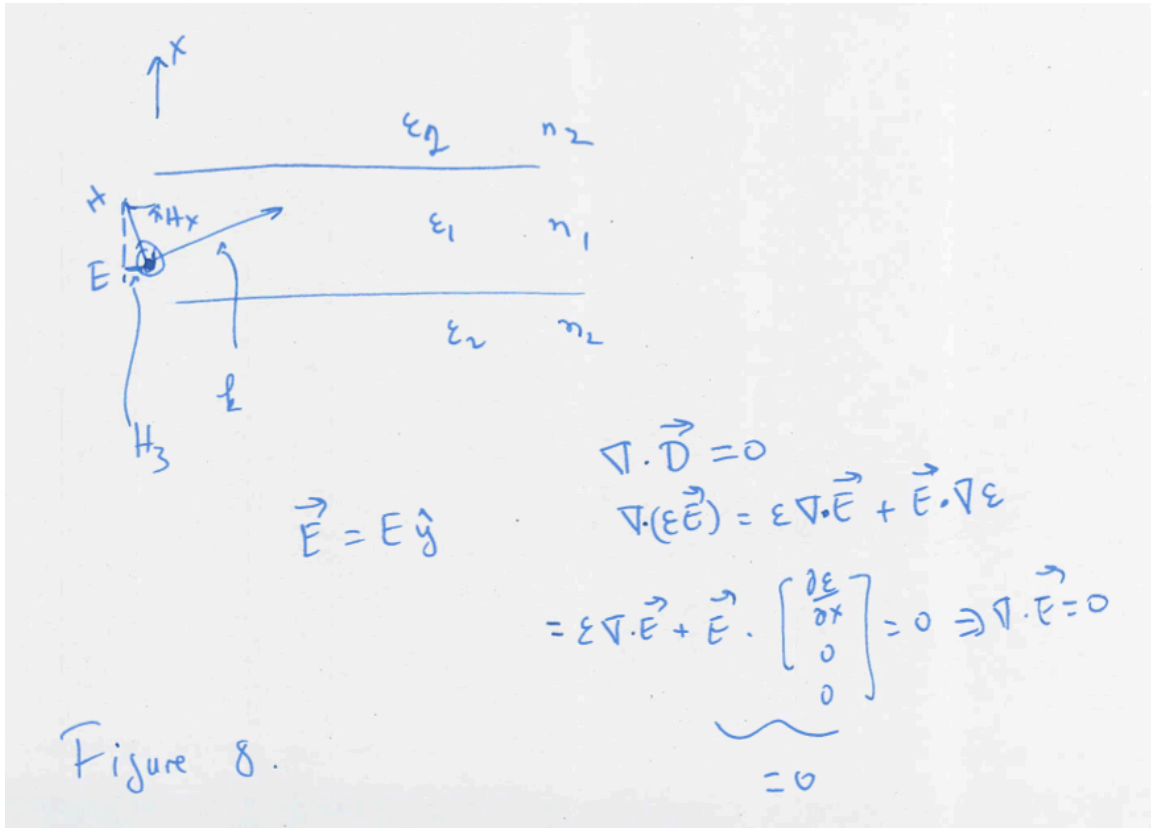 x
ε2 n2
H Hx
ε1 n1
E
ε2 n2
k
H3
∇·D⃗ = 0
E⃗ = E ŷ
∇·(εE⃗) = ε∇·E⃗ + E⃗·∇ε
= ε∇·E⃗ + E⃗· [∂ε/∂x 0 0] = 0 ⇒ ∇·E⃗ = 0
= 0
Figure 8.